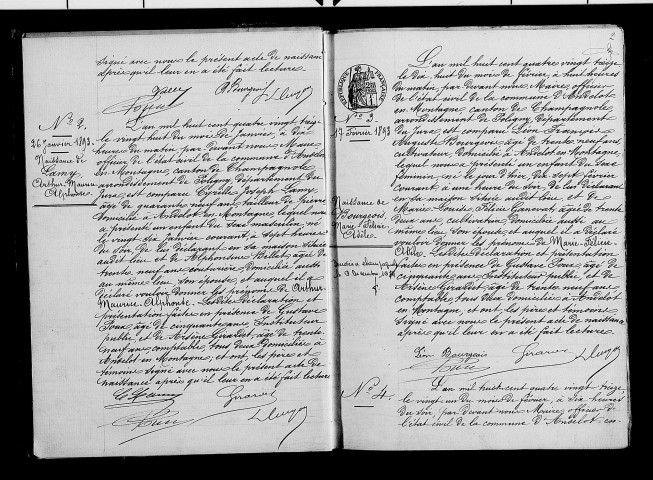 signé avec nous le présent acte de naissance
après qu'il leur en a été fait lecture
N° 2.
26 Janvier 1893
Naissance de
Lamy
Arthur Maurice
Alphonse
L'an mil huit cent quatre vingt treize
le vingt huit du mois de janvier, à dix
heures du matin par devant nous Maire
officier de l'état civil de la commune d'Andelot
en Montagne, canton de Champagnole
arrondissement de Poligny, département du
Jura, est comparu Cyrille Joseph Lamy
âgé de quarante neuf ans, tailleur de pierre
domicilié à Andelot en Montagne, lequel nous
a présenté un enfant du sexe masculin, né
le vingt six janvier courant, à sept heures
du soir, de lui déclarant en sa maison située
audit lieu et de Alphonsine Billet âgée de
trente neuf ans couturière domiciliée aussi
au même lieu, son épouse, et auquel il a
déclaré vouloir donner les prénoms de Arthur
Maurice Alphonse. Les dites déclaration et
présentation faites en présence de Gustave
Toux âgé de cinquante ans, Instituteur
public, et de Arsène Girardet âgé de trente
neuf ans comptable, tous deux domiciliés à
Andelot en Montagne, et ont, les père et
témoins signé avec nous le présent acte de
naissance après qu'il leur en a été fait lecture
2
RÉPUBLIQUE FRANÇAISE
N° 3.
17 Février 1893
Naissance de
Bourgeois
Marie Félicie
Adèle
L'an mil huit cent quatre vingt treize
le dix huit du mois de février, à huit heures
du matin, par devant nous Maire, officier
de l'état civil de la commune d'Andelot
en Montagne canton de Champagnole
arrondissement de Poligny, département
du Jura est comparu Léon François
Auguste Bourgeois âgé de trente neuf ans,
cultivateur, domicilié à Andelot en Montagne,
lequel nous a présenté un enfant du sexe
féminin, né le jour d'hier, dix sept février
courant, à une heure du soir, de lui déclarant
en sa maison située audit lieu, et de
Marie Félicie Ganevat, âgée de trente
deux ans, cultivatrice, domiciliée aussi au
même lieu, son épouse, et auquel il a déclaré
vouloir donner les prénoms de Marie Félicie
Adèle. Les dites déclaration et présentation
faites en présence de Gustave Toux, âgé de
cinquante ans Instituteur public, et de
Arsène Girardet, âgé de trente neuf ans,
comptable tous deux domiciliés à Andelot
en Montagne, et ont, les père et témoins
signé avec nous le présent acte de naissance
après qu'il leur en a été fait lecture
Léon Bourgeois
N° 4.
L'an mil huit cent quatre vingt treize
le vingt un du mois de février, à dix heures
du soir, par devant nous Maire, officier de
l'état civil de la commune d'Andelot en